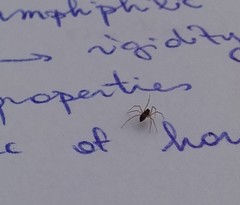 amphiphilic
→ rigidity
properties
c of hor